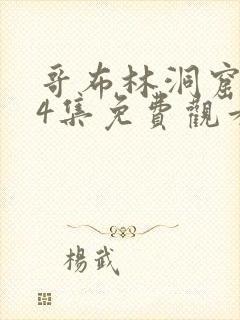 哥布林洞窟
4集免費觀
楊武